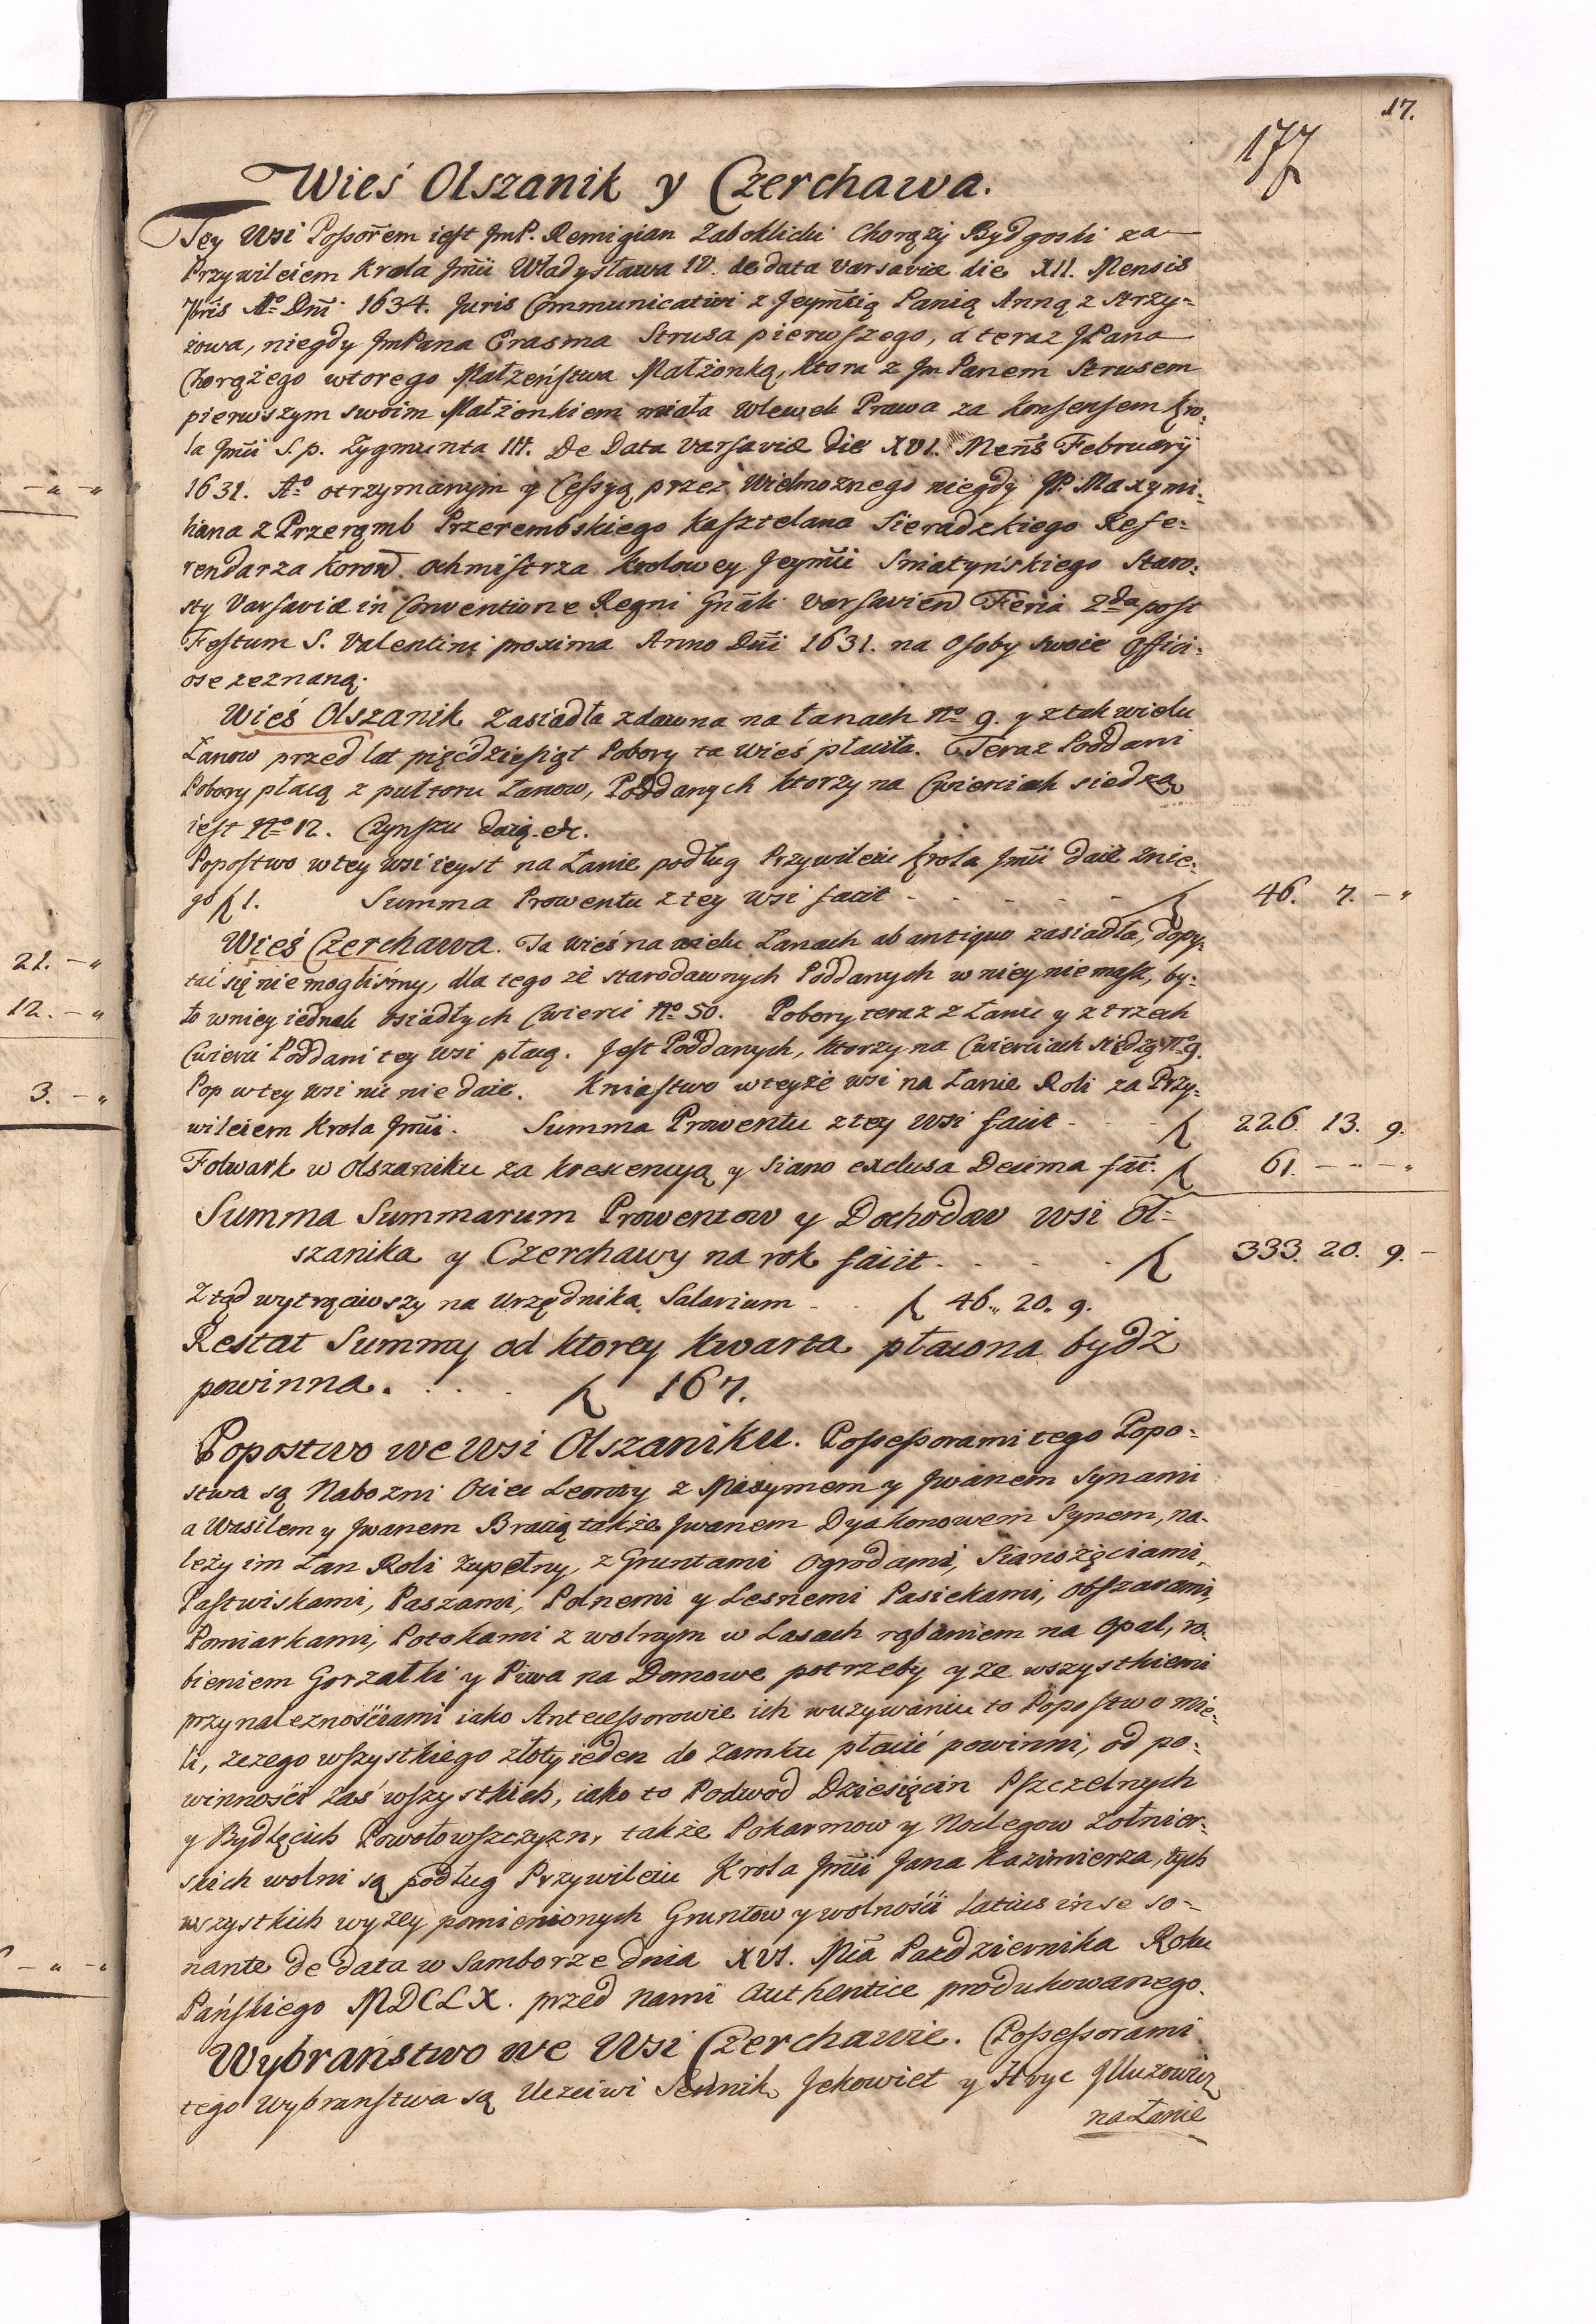 17.
177
Wieś Olszanik y Czerchawa.
Tey Wsi Possorem iest JmP. Remigian Zaboklicki Chorąży Bydgoski za
Przywileiem Krola Jmći Władysława IV. de data Varsaviæ die XII. Mensis
7bris Aº Dni 1634. Juris Communicativi z Jeymścią Panią Anną z Strzy=
żowa, niegdy JmPana Erasma Strusa pierwszego, a teraz JPana
Chorążego wtorego Małżeństwa Małżonką, ktora z Jm Panem Strusem
pierwszym swoim Małżonkiem miała Wlewek Prawa za Konsensem Kro=
la Jmći S. p. Zygmunta III. De Data Varsaviæ Die XVI. Mens Februarij
1631. Aº otrzymanym y Cessyą przez Wielmożnego niegdy JP. Maxymi=
liana z Przerąmb Przerembskiego Kasztelana Sieradzkiego Refe=
rendarza Koron. Ochmistrza Krolowey Jeymći Sniatyńskiego Staro=
sty Varsaviæ in Conventione Regni Gnali Varsavien Feria 2da post
Festum S. Valentini proxima Anno Dni 1631. na Osoby swoie Offici=
ose zeznaną.
Wieś Olszanik zasiadła zdawna na łanach Nº 9. y z tak wielu
Łanow przed lat pięćdziesiąt Pobory ta Wieś płaciła. Teraz Poddani
Pobory płacą z pułtoru Łanow, Poddanych ktorzy na Cwierciach siedzą
iest Nº 12. Czynszu daią etc.
Popostwo w tey wsi ieyst na Łanie podług Przywileiu Krola Jmći daie z nie=
go f 1. Summa Prowentu z tey Wsi facit - - - - - f 46. 7. - "
Wieś Czerchawa. Ta Wieś na wielu Łanach ab antiquo zasiadła, dopy=
tać się nie moglismy, dla tego że starodawnych Poddanych w niey nie masz, by=
ło w niey iednak osiadłych Cwierci Nº 50. Pobory teraz z Łanu y z trzech
Cwierci Poddani tey Wsi płacą. Jest Poddanych, ktorzy na Cwierciach siedzą Nº 9.
Pop w tey wsi nic nie daie. Kniastwo w teyże wsi na Łanie Roli za Przy=
wileiem Krola Jmći. Summa Prowentu z tey Wsi facit - - - f 226. 13. 9.
Folwark w Olszaniku za krescencyą y Siano exclusa Decima fac. f 61. - " - "
Summa Summarum Prowentow y Dochodow Wsi Ol=
szanika y Czerchawy na rok facit - - - - f 333. 20. 9. -
Ztąd wytrąciwszy na Urzędnika Salarium - - f 46,, 20,, 9.
Restat Summy od ktorey kwarta płacona bydź
powinna. . . . f 167.
Popostwo we Wsi Olszaniku. Possessorami tego Popo=
stwa są Nabożni Ociec Leonty z Maxymem y Jwanem Synami
a Wasilem y Jwanem Bracią także Jwanem Dyakonowem Synem, na=
leży im Łan Roli zupełny, z Gruntami Ogrodami, Sianożęciami,
Pastwiskami, Paszami, Polnemi y Lesnemi Pasiekami, Obszarami,
Pomiarkami, Potokami z wolnym w Lasach rąbaniem na Opał, ro=
bieniem Gorzałki y Piwa na Domowe potrzeby y ze wszystkiemi
przynależnościami iako Antecessorowie ich w używaniu to Popostwo mie=
li, z czego wszystkiego złoty ieden do Zamku płacić powinni, od po=
winności zaś wszystkich, iako to Podwod Dziesięcin Pszczelnych
y Bydlęcich Powołowszczyzn, także Pokarmow y Noclegow Zołnier=
skich wolni są podług Przywileiu Krola Jmći Jana Kazimierza, tych
wszystkich wyżey pomienionych Gruntow y wolności latius in se so=
nante de data w Samborze dnia XVI. Mca Pazdziernika Roku
Pańskiego MDCLX. przed nami Authentice produkowanego.
Wybraństwo we Wsi Czerchawie. Possessorami
tego Wybranstwa są Uczciwi Sennik Jckowiet y Hryc Jlluzowicz
na Łanie
21. - "
12. - "
3. - "